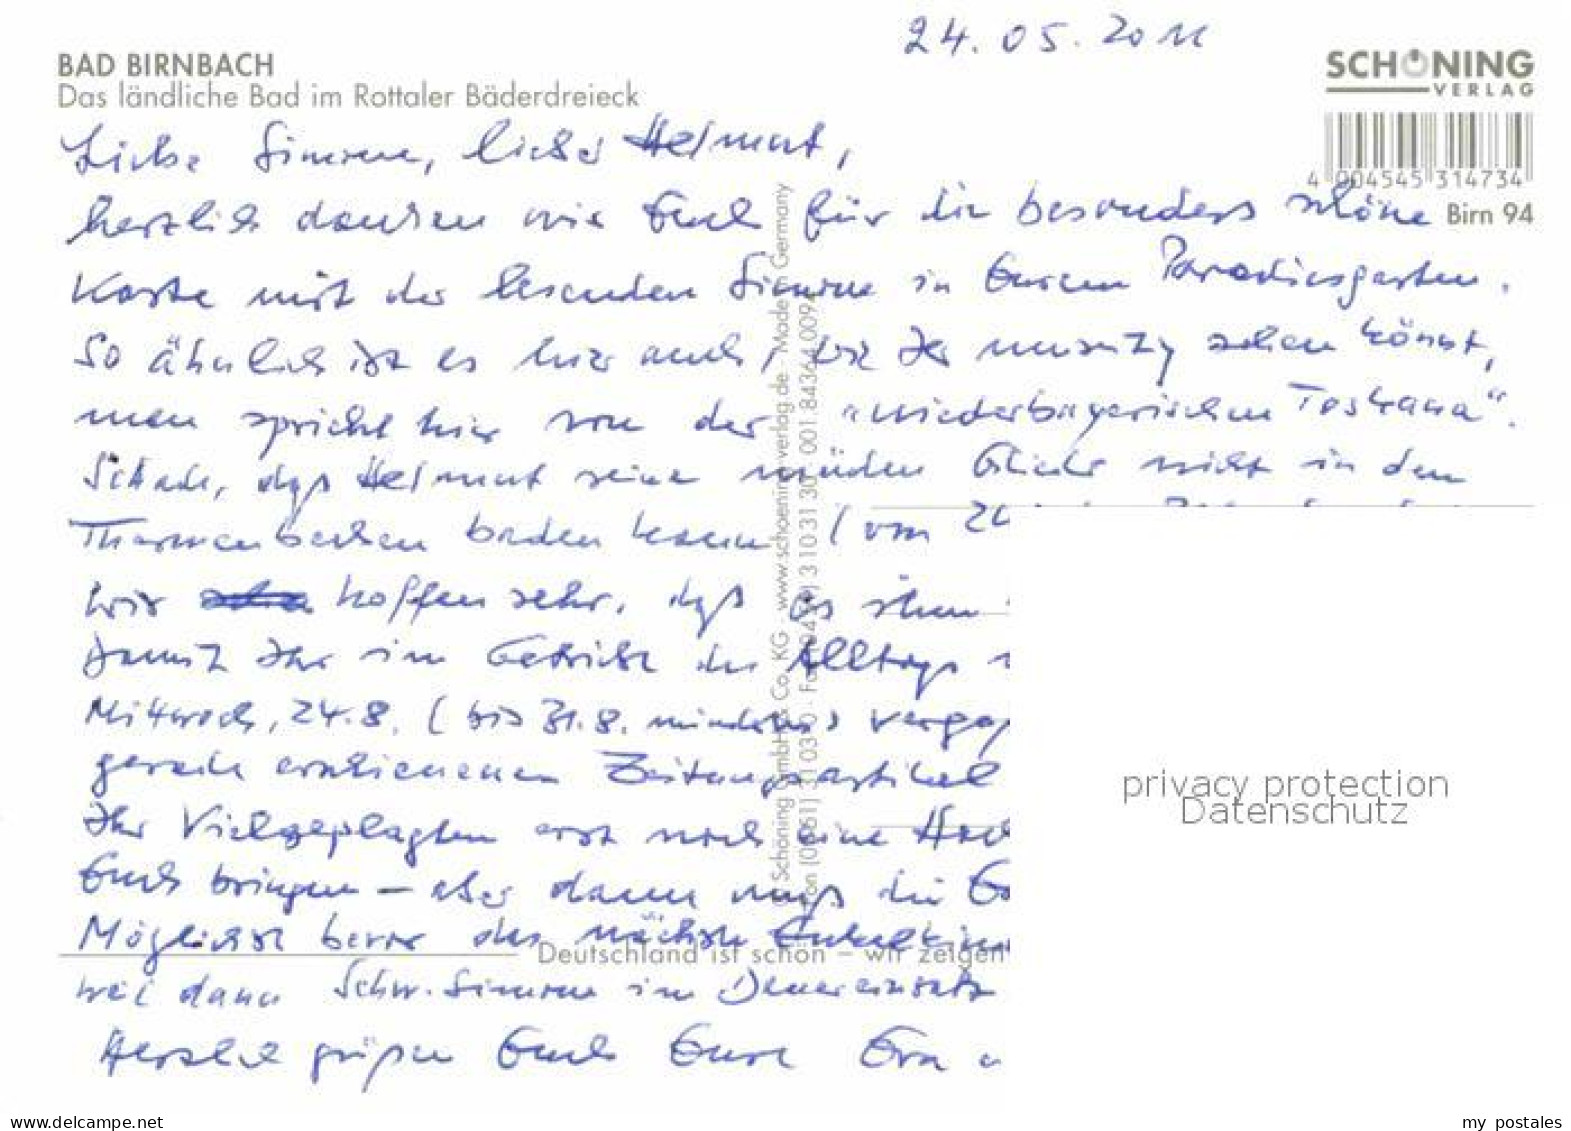 24.05.2011
BAD BIRNBACH
Das ländliche Bad im Rottaler Bäderdreieck
SCHÖNING
VERLAG
4 004545 314734
Birn 94
Liebe Simone, lieber Helmut,
herzlich danken wir Euch für die besonders schöne
Karte mit der lesenden Simone in Eurem Paradiesgarten.
So ähnlich ist es hier auch, wie Ihr umseitig sehen könnt,
man spricht hier von der "niederbayerischen Toskana".
Schade, daß Helmut seine müden Glieder nicht in den
Thermenbecken baden kann (vom 24
Wir hoffen sehr, daß es ihm
Damit Ihr im Getriebe des Alltags
Mittwoch, 24.8. (bis 31.8. mindens)
gerade erschienenen Zeitungsartikel
Ihr Vielgeplagten erst noch eine
Euch bringen – aber dann muß die
Möglichst bevor das nächste
weil dann Schw. Simone im Dauereinsatz
Herzlich grüßen Euch Eure
© Schöning GmbH & Co. KG · www.schoening-verlag.de · Made in Germany
Deutschland ist schön – wir zeigen
privacy protection
Datenschutz
www.delcampe.net
my_postales